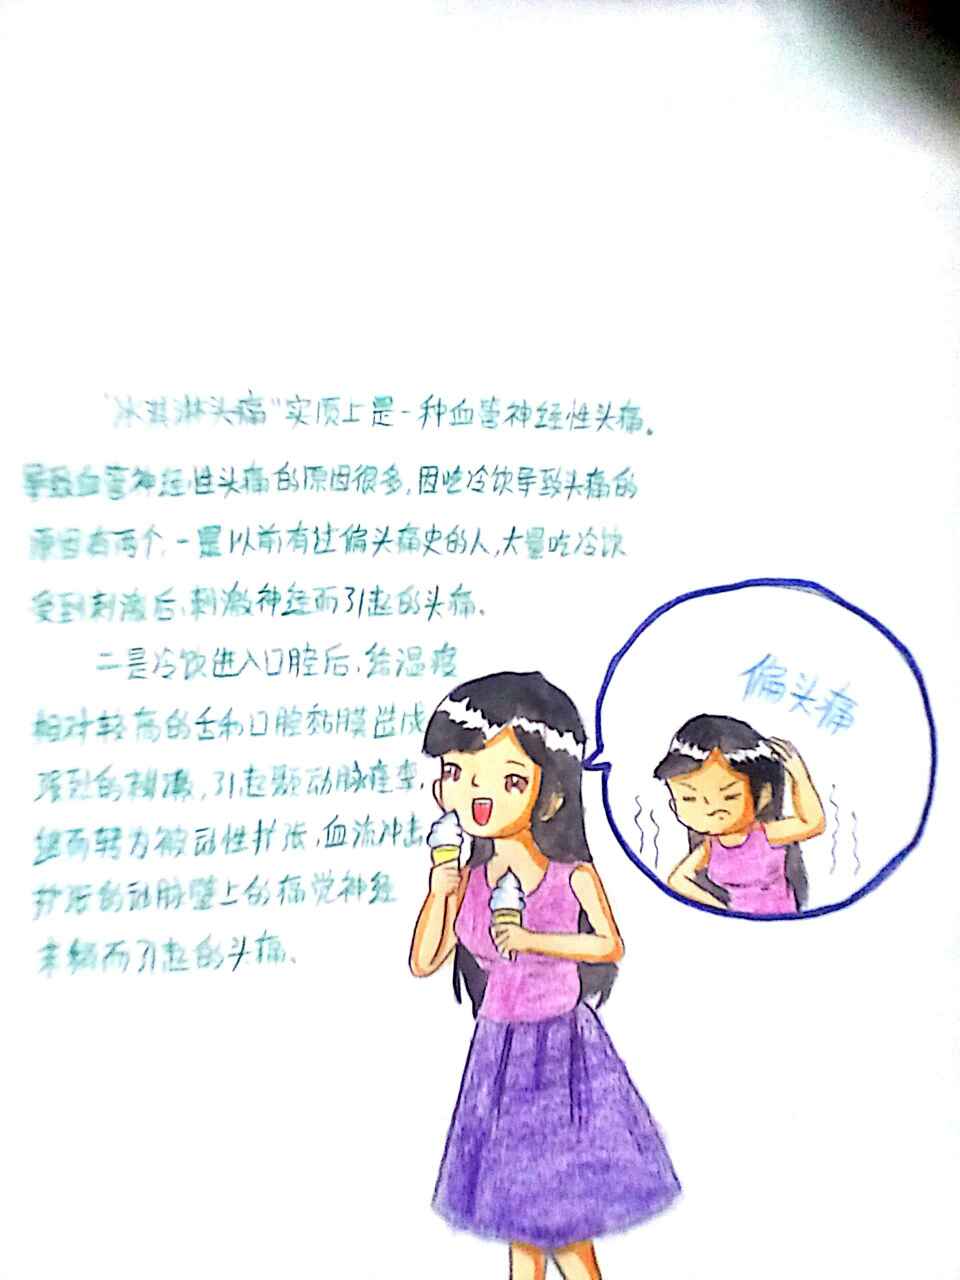 “冰淇淋头痛”实质上是一种血管神经性头痛。
导致血管神经性头痛的原因很多,因吃冷饮导致头痛的
原因有两个,一是以前有过偏头痛史的人,大量吃冷饮
受到刺激后,刺激神经而引起的头痛。
二是冷饮进入口腔后,给温度
相对较高的舌和口腔黏膜造成
强烈的刺激,引起颞动脉痉挛,
继而转为被动性扩张,血流冲击
扩张的动脉壁上的痛觉神经
末梢而引起的头痛。
偏头痛